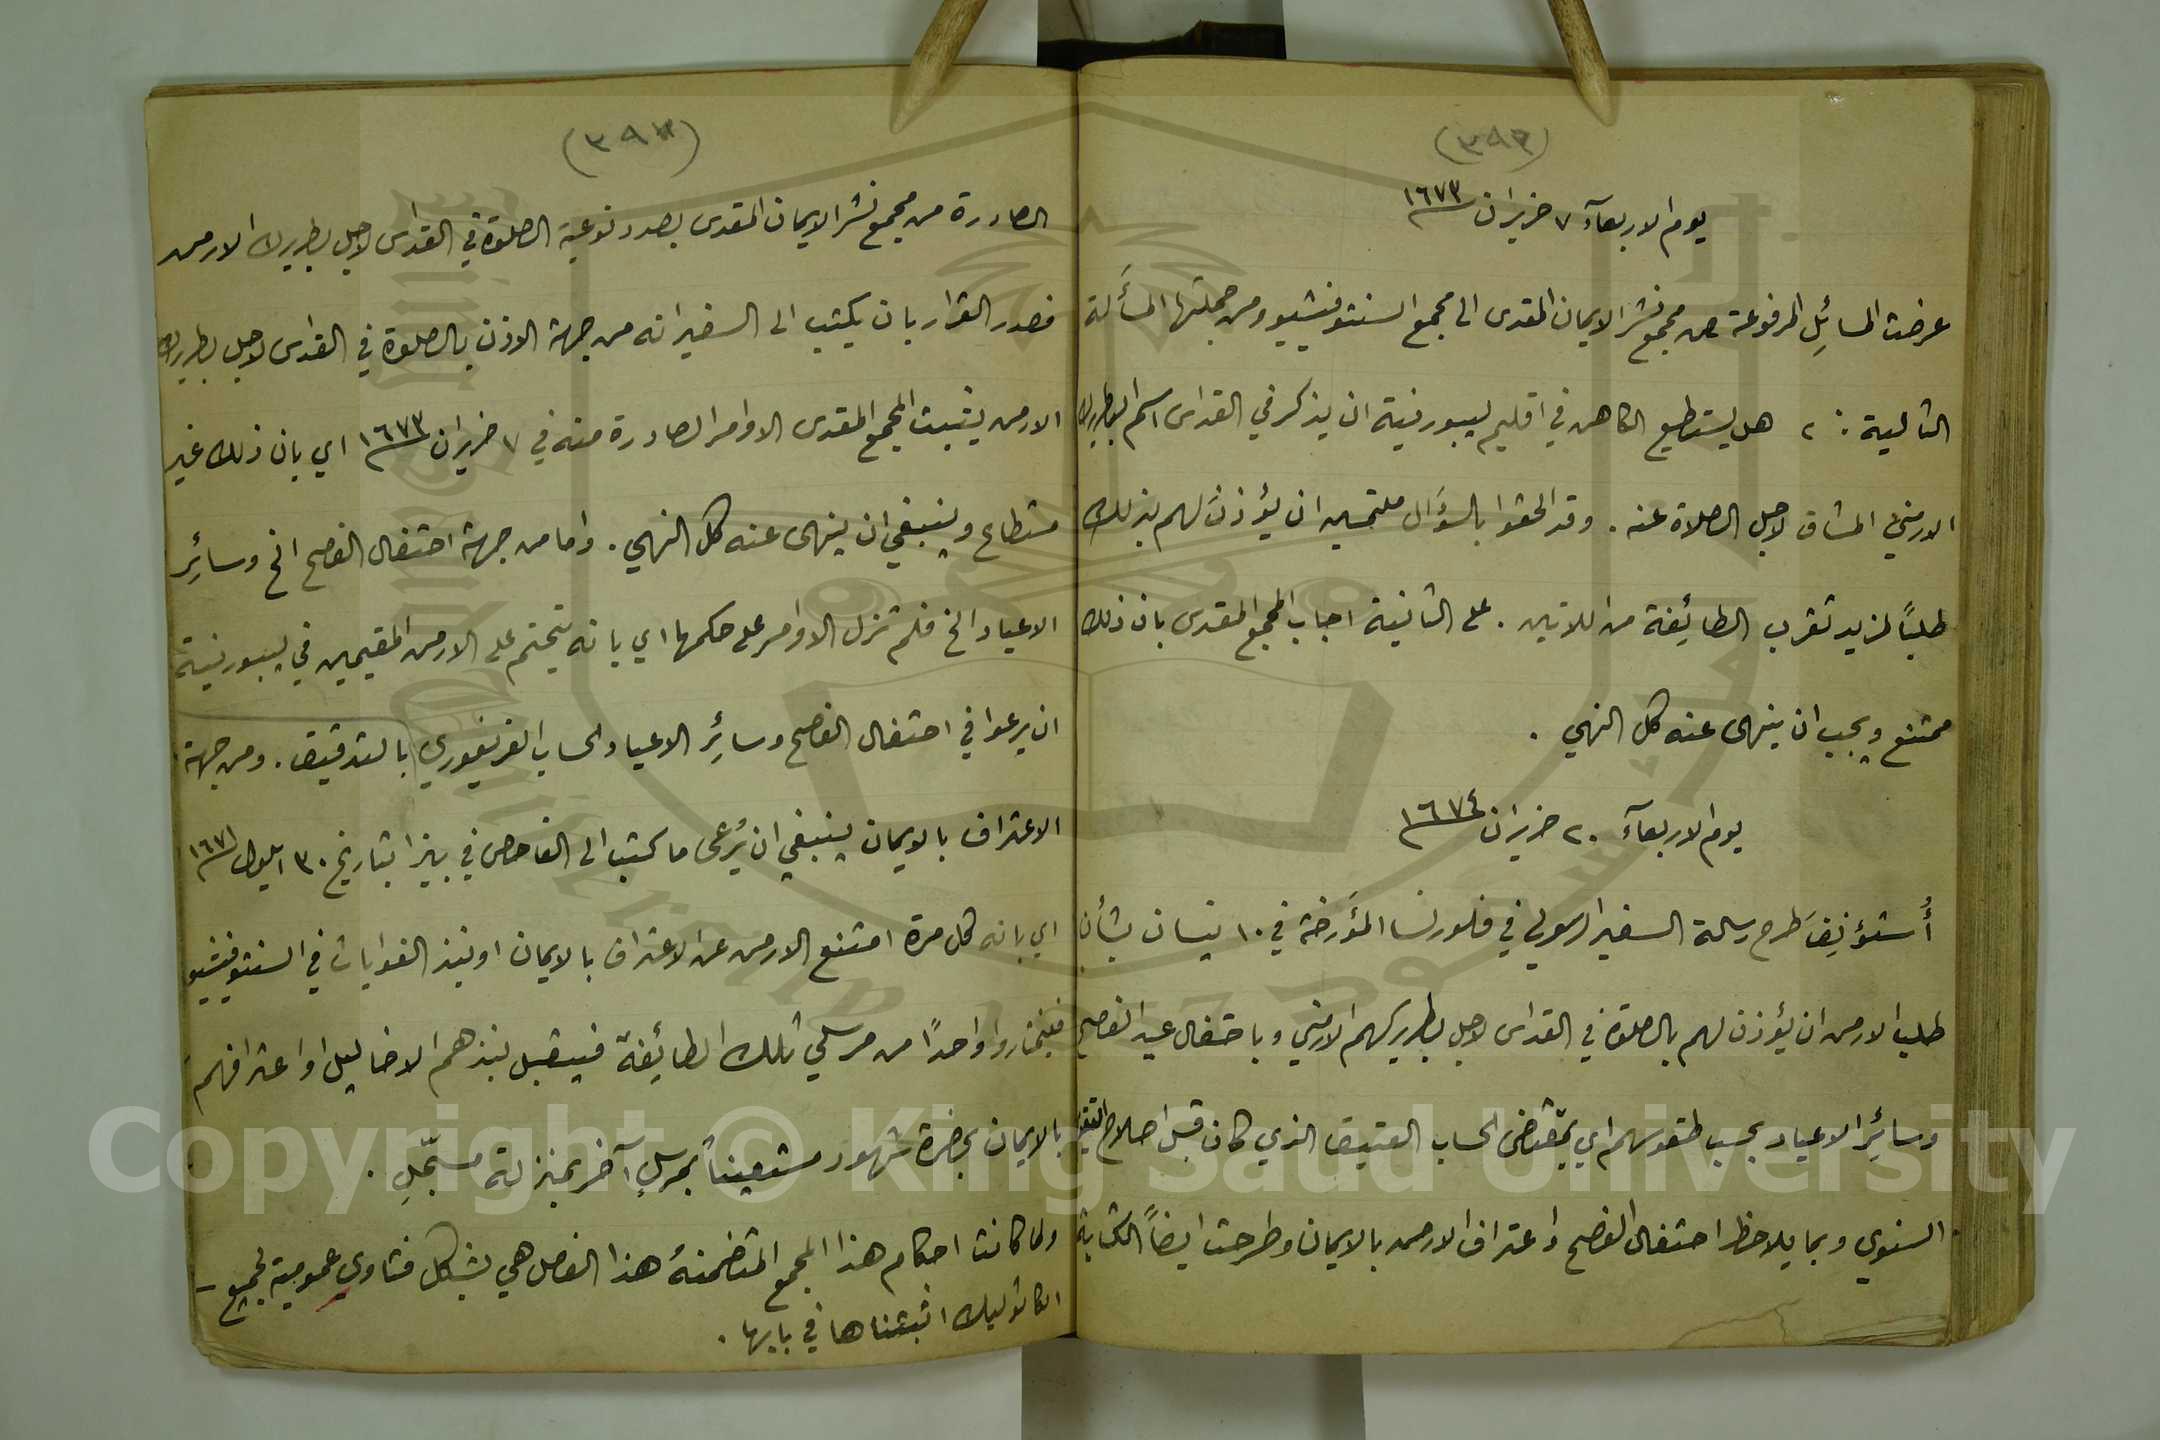 (٣٩٢)
يوم الاربعآء ٧ حزيران ١٦٧٣
عرضت المسائِل المرفوعة من مجمع نشر الايمان المقدس الى مجمع السنتوفيشيو ومن جملتها المسأَلة
التالية : ٢ هل يستطيع الكاهن في اقليم ليبورنية ان يذكر في القداس اسم البطريرك
الارمني المشاق لاجل الصلاة عنه . وقد الحقوا بالسؤَال ملتمسين ان يؤذنَ لهم بذلك
طلباً لمزيد تقرب الطائِفة من اللاتين . على الثانية اجاب المجمع المقدس بان ذلك
ممتنع ويجب ان ينهى عنه كل النهي .
يوم الاربعآء ٢٠ حزيران ١٦٧٤
أُستؤنِفَ طرح رسالة السفير الرسولي في فلورنسا المؤَرخة في ١٠ نيسان بشأن
طلب الارمن ان يؤذن لهم بالصلوة في القداس لاجل بطريركهم الارمني وباحتفال عيد الفصح
وسائِر الاعياد بحسب طقوسهم اي بمقتضى الحساب العتيق الذي كان قبل اصلاح التقويم
السنوي وبما يلاحظ احتفال الفصح واعتراف الارمن بالايمان وطرحت ايضاً الكتابة
(٣٩٣)
الصادرة من مجمع نشر الايمان المقدس بصدد نوعية الصلوة في القداس لاجل بطريرك الارمن
فصدر القرار بان يكتب الى السفير انه من جهة الاذن بالصلوة في القداس لاجل بطريرك
الارمن يثبت المجمع المقدس الاوامر الصادرة منه في ٧ حزيران ١٦٧٣ اي بان ذلك غير
مستطاع وينبغي ان ينهى عنه كل النهي . واما من جهة احتفال الفصح الخ وسائِر
الاعياد الخ فلم تزل الاوامر على حكمها اي بانه يتحتم على الارمن المقيمين في ليبورنية
ان يرعوا في احتفال الفصح وسائِر الاعياد الحساب الغريغوري بالتدقيق . ومن جهة
الاعتراف بالايمان ينبغي ان يُرعى ما كتب الى الفاحص في بيزا بتاريخ ٣٠ ايلول ١٦٧١
اي بانه كل مرة امتنع الارمن عن الاعتراف بالايمان او نبذ الغوايات في السنتوفيشيو
فيختاروا واحدًا من مرسلي تلك الطائِفة فيقبل نبذهم الاضاليل او اعترافهم
بالايمان بحضرة شهود مستعيناً بمرسلٍ آخر بمنزلة مسجّلٍ .
ولما كانت احكام هذا المجمع المتضمنهُ هذا الفصل هي بشكل فتاوى عمومية لجميع
الكاثوليك اثبتناها في بابها .
Copyright © King Saud University